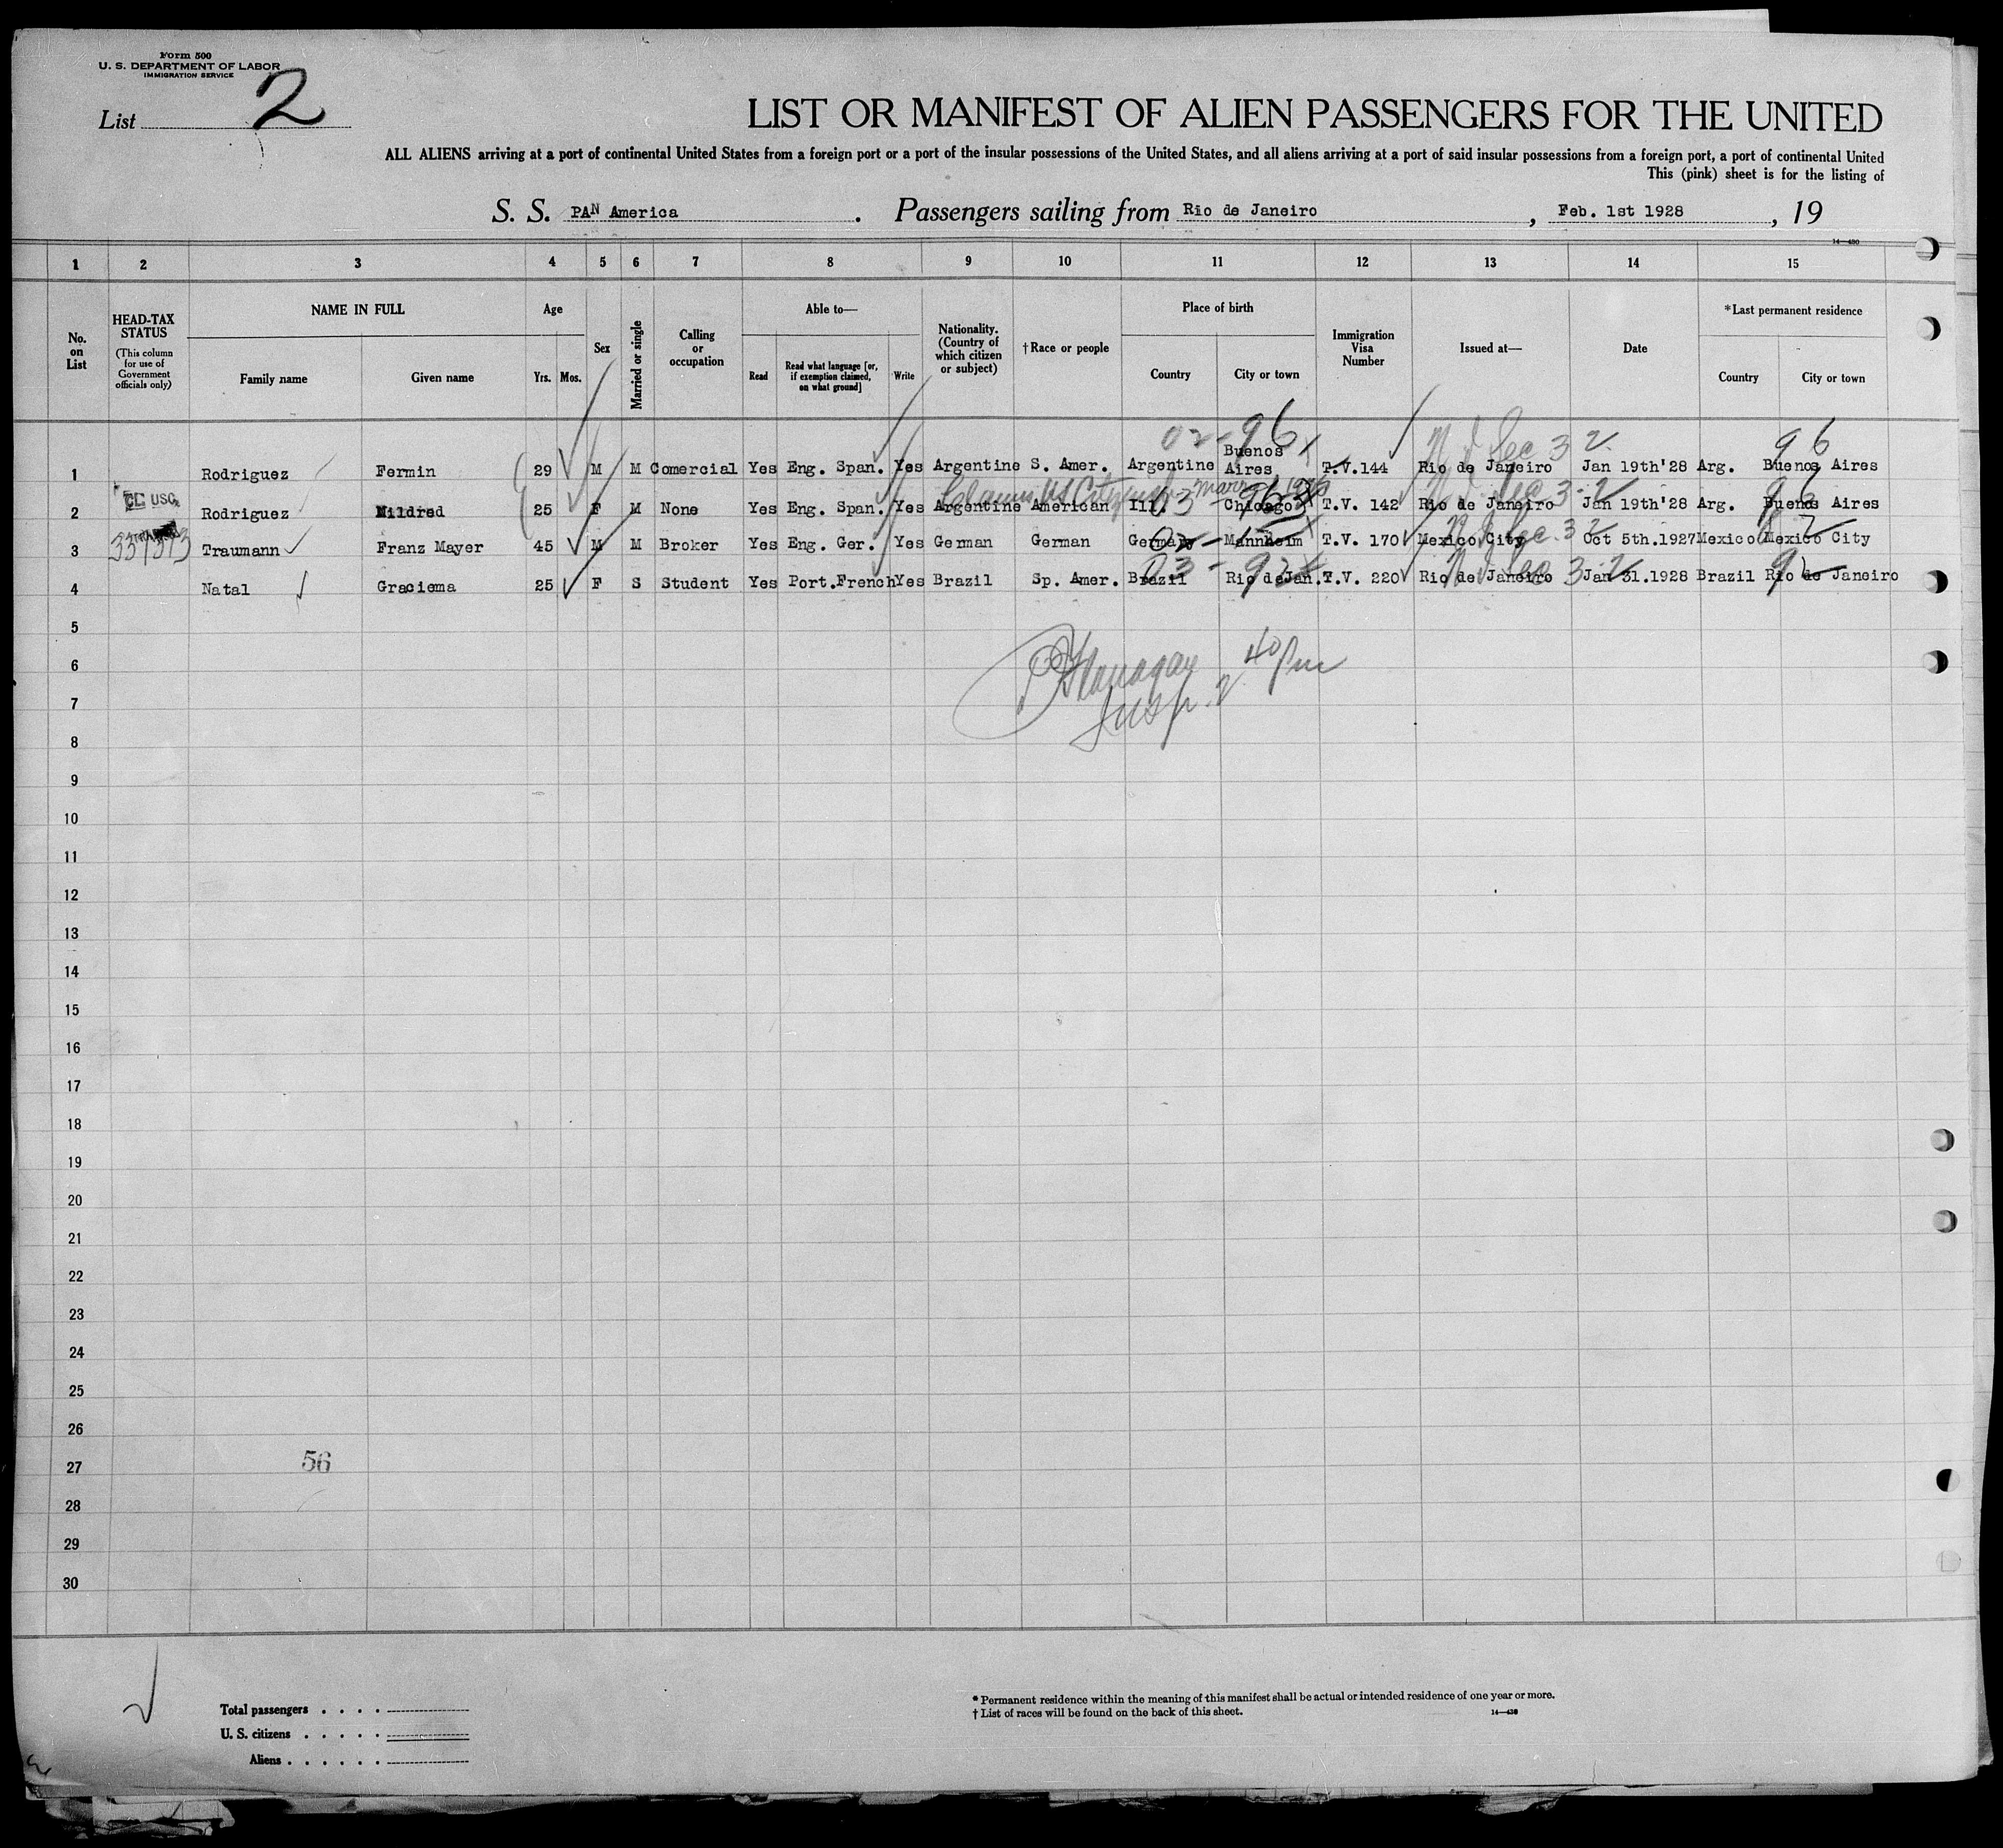 Form 500
U. S. DEPARTMENT OF LABOR
IMMIGRATION SERVICE
List 2
LIST OR MANIFEST OF ALIEN PASSENGERS FOR THE UNITED
ALL ALIENS arriving at a port of continental United States from a foreign port or a port of the insular possessions of the United States, and all aliens arriving at a port of said insular possessions from a foreign port, a port of continental United
This (pink) sheet is for the listing of
S. S. PAN America . Passengers sailing from Rio de Janeiro , Feb. 1st 1928 , 19
14—430
1 2 3 4 5 6 7 8 9 10 11 12 13 14 15
No. on List
HEAD-TAX STATUS (This column for use of Government officials only)
NAME IN FULL
Family name Given name
Age
Yrs. Mos.
Sex
Married or single
Calling or occupation
Able to—
Read Read what language [or, if exemption claimed, on what ground] Write
Nationality. (Country of which citizen or subject)
† Race or people
Place of birth
Country City or town
Immigration Visa Number
Issued at—
Date
*Last permanent residence
Country City or town
02-96 96
1 Rodriguez Fermin 29 M M Comercial Yes Eng. Span. Yes Argentine S. Amer. Argentine Buenos Aires T.V.144 Rio de Janeiro Jan 19th'28 Arg. Buenos Aires
USC
2 Rodriguez Mildred 25 F M None Yes Eng. Span. Yes Argentine American Ill. Chicago T.V. 142 Rio de Janeiro Jan 19th'28 Arg. Buenos Aires
3 Traumann Franz Mayer 45 M M Broker Yes Eng. Ger. Yes German German Germany Mannheim T.V. 170 Mexico City Oct 5th.1927 Mexico Mexico City
4 Natal Graciema 25 F S Student Yes Port.French Yes Brazil Sp. Amer. Brazil Rio deJan. T.V. 220 Rio de Janeiro Jan 31.1928 Brazil Rio de Janeiro
5
6
Flanagan
7
Insp. 2 40 pm
8
9
10
11
12
13
14
15
16
17
18
19
20
21
22
23
24
25
26
27 56
28
29
30
Total passengers . . . .
U. S. citizens . . . . .
Aliens . . . . . .
* Permanent residence within the meaning of this manifest shall be actual or intended residence of one year or more.
† List of races will be found on the back of this sheet.
14—430